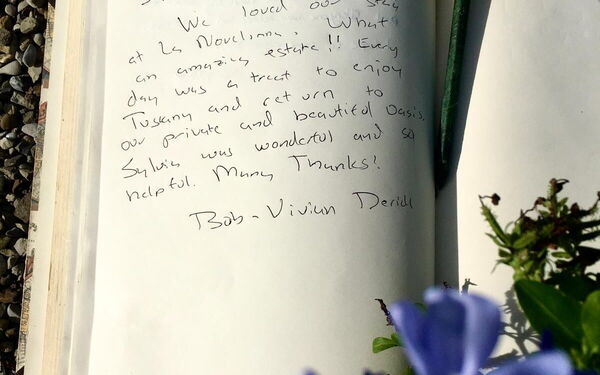 We loved our stay
at La Novelinna. What
an amazing estate!! Every
day was a treat to enjoy
Tuscany and return to
our private and beautiful oasis.
Sylvia was wonderful and so
helpful. Many Thanks!
Bob - Vivian Derick